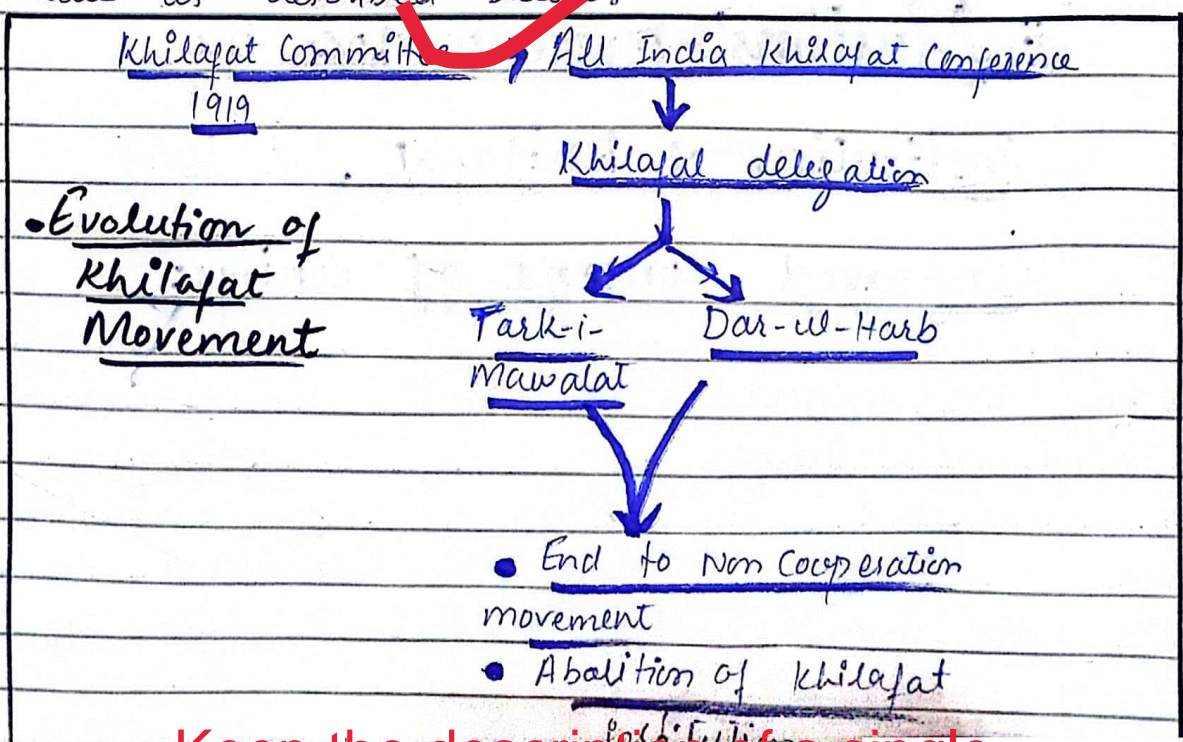 Khilafat Committee , All India Khilafat Conference
1919
Khilafat delegation
• Evolution of
Khilafat
Movement
Tark-i-
Mawalat
Dar-ul-Harb
• End to Non Cooperation
movement
• Abolition of Khilafat
Keep the description of a single